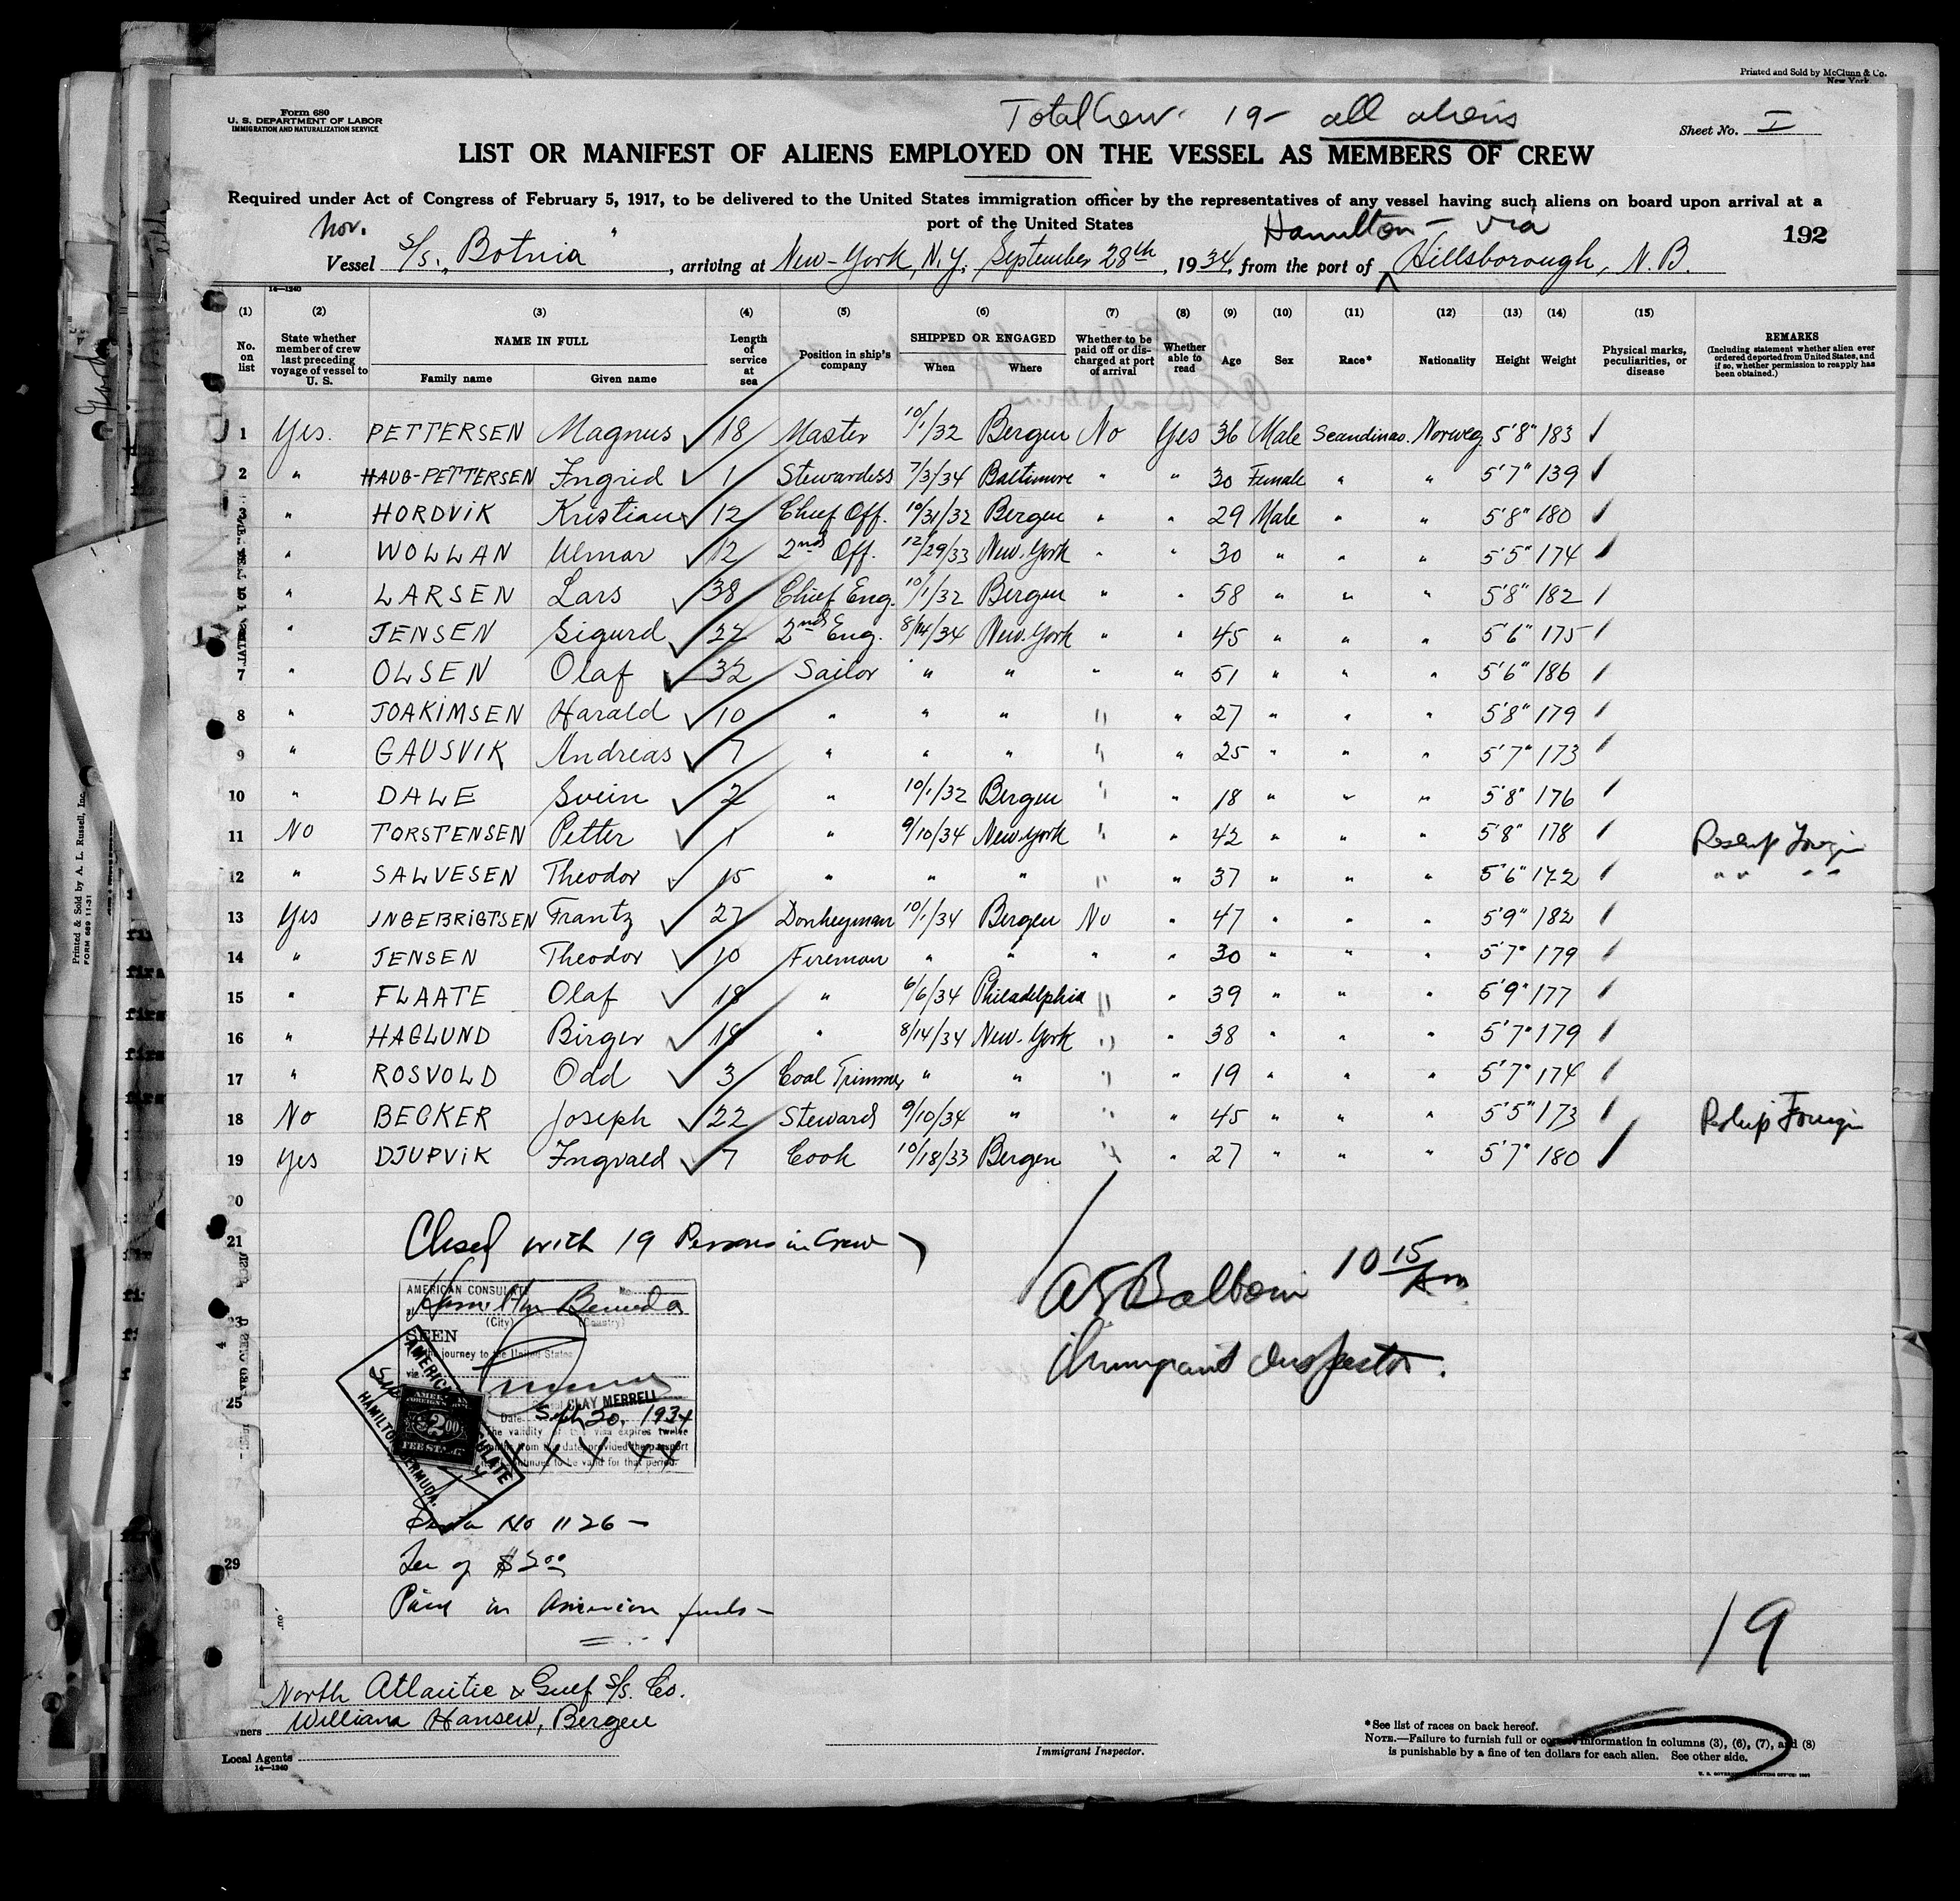 Printed and Sold by McClunn & Co.
New York.
Form 680
U. S. DEPARTMENT OF LABOR
IMMIGRATION AND NATURALIZATION SERVICE
Total Crew. 19 - all aliens
Sheet No. I
LIST OR MANIFEST OF ALIENS EMPLOYED ON THE VESSEL AS MEMBERS OF CREW
Required under Act of Congress of February 5, 1917, to be delivered to the United States immigration officer by the representatives of any vessel having such aliens on board upon arrival at a
port of the United States
Nor. Hamilton - via 192
Vessel S/S. "Botnia", arriving at New-York, N.Y. September 28th, 1934, from the port of Hillsborough, N.B.
14—1240
(1) (2) (3) (4) (5) (6) (7) (8) (9) (10) (11) (12) (13) (14) (15)
No. on list State whether member of crew last preceding voyage of vessel to U. S. NAME IN FULL Family name Given name Length of service at sea Position in ship's company SHIPPED OR ENGAGED When Where Whether to be paid off or discharged at port of arrival Whether able to read Age Sex Race* Nationality Height Weight Physical marks, peculiarities, or disease REMARKS (Including statement whether alien ever ordered deported from United States, and if so, whether permission to reapply has been obtained.)
1 Yes. PETTERSEN Magnus 18 Master 10/1/32 Bergen No Yes 36 Male Scandinav. Norweg. 5'8" 183
2 " HAUG-PETTERSEN Ingrid 1 Stewardess 7/3/34 Baltimore " " 30 Female " " 5'7" 139
3 " HORDVIK Kristian 12 Chief Off. 10/31/32 Bergen " " 29 Male " " 5'8" 180
" WOLLAN Ulmar 12 2nd Off. 12/29/33 New-York " " 30 " " " 5'5" 174
" LARSEN Lars 38 Chief Eng. 10/1/32 Bergen " " 58 " " " 5'8" 182
" JENSEN Sigurd 27 2nd Eng. 8/14/34 New-York " " 45 " " " 5'6" 175
7 " OLSEN Olaf 32 Sailor " " " " 51 " " " 5'6" 186
8 " JOAKIMSEN Harald 10 " " " " " 27 " " " 5'8" 179
9 " GAUSVIK Andreas 7 " " " " " 25 " " " 5'7" 173
10 " DALE Svein 2 " 10/1/32 Bergen " " 18 " " " 5'8" 176
11 No TORSTENSEN Petter 1 " 9/10/34 New-York " " 42 " " " 5'8" 178 Reship Foreign
12 " SALVESEN Theodor 15 " " " " " 37 " " " 5'6" 172 " " " "
13 Yes INGEBRIGTSEN Frantz 27 Donkeyman 10/1/34 Bergen No " 47 " " " 5'9" 182
14 " JENSEN Theodor 10 Fireman " " " " 30 " " " 5'7" 179
15 " FLAATE Olaf 18 " 6/6/34 Philadelphia " " 39 " " " 5'9" 177
16 " HAGLUND Birger 18 " 8/14/34 New-York " " 38 " " " 5'7" 179
17 " ROSVOLD Odd 3 Coal Trimmer " " " " 19 " " " 5'7" 174
18 No BECKER Joseph 22 Steward 9/10/34 " " " 45 " " " 5'5" 173 Reship Foreign
19 Yes DJUPVIK Ingvald 7 Cook 10/18/33 Bergen " " 27 " " " 5'7" 180
20
21 Closed with 19 Persons in Crew
10 15 Am
Immigrant Inspector.
AMERICAN CONSULATE No.
at Hamilton Bermuda
(City) (Country)
23
SEEN
For the journey to the United States
via
CLAY MERRELL
25
Date Sept 20, 1934
The validity of this visa expires twelve
months from this date, provided the passport
continues to be valid for that period.
AMERICAN CONSULATE
HAMILTON, BERMUDA.
AMERICAN
FOREIGN SERVICE
$2.00
FEE STAMP
27
28 No 1126 -
29 Fee of $2.00
30 Paid in American funds -
19
North Atlantic & Gulf S/S. Co.
Owners William Hansen, Bergen
Local Agents
14—1240
Immigrant Inspector.
*See list of races on back hereof.
NOTE.—Failure to furnish full or correct information in columns (3), (6), (7), and (8)
is punishable by a fine of ten dollars for each alien. See other side.
U. S. GOVERNMENT PRINTING OFFICE
Printed & Sold by A. L. Russell, Inc.
FORM 689 11-31